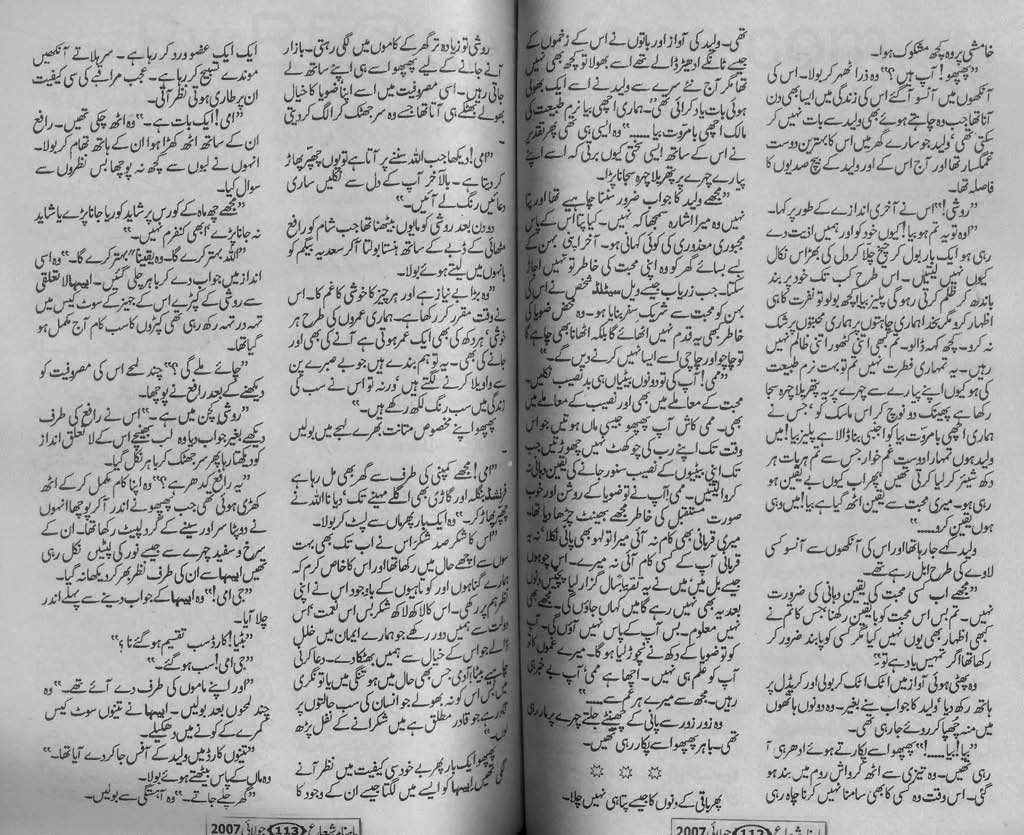 خامشی پر وہ کچھ مشکوک ہوا۔
”پھپھو! آپ ہیں؟“ وہ ذرا ٹھہر کر بولا۔ اس کی
آنکھوں میں آنسو آ گئے اس کی زندگی میں ایسا بھی دن
آنا تھا جب وہ چاہتے ہوئے بھی ولید سے بات نہیں کر
سکتی تھی‘ ولید جو سارے گھر میں اس کا بہترین دوست
غمگسار تھا اور آج اس کے اور ولید کے بیچ صدیوں کا
فاصلہ تھا۔
”روشی!“ اس نے آخری اندازے کے طور پر کہا۔
”اوہ تو یہ تم ہو بیا! کیوں خود کو اور ہمیں اذیت دے
رہی ہو ایک بار بول کر چیخ چلا کر دل کی بھڑاس نکال
کیوں نہیں لیتیں۔ اس طرح کب تک خود پر بند
باندھ کر ظلم کرتی رہو گی پلیز بیا! کچھ بولو تو نفرت کا ہی
اظہار کرو مگر بخدا ہماری چاہتوں پر ہماری محبتوں پر شک
نہ کرو۔ کچھ کہہ ڈالو۔ تم بھی اتنی کٹھور اتنی ظالم نہیں
رہیں۔ یہ تمہاری فطرت نہیں تم تو بہت نرم طبیعت
کی ہو کیوں اپنے پیارے سے چہرے پر یہ پتھریلا چہرہ سجا
رکھا ہے پھینک دو نوچ کر اس ماسک کو‘ جس نے
ہماری اچھی بامروت بیا کو اجنبی بنا ڈالا ہے پلیز بیا! میں
ولید ہوں تمہارا دوست غم خوار جس سے تم ہر بات ہر
دکھ شیئر کر لیا کرتی تھیں پھر اب کیوں بے یقین ہو
رہی ہو۔ میری محبت سے یقین اٹھ گیا ہے بیا! میں وہی
ہوں یقین کرو.....“
ولید کہے جا رہا تھا اور اس کی آنکھوں سے آنسو کسی
لاوے کی طرح ابل رہے تھے۔
”مجھے اب کسی محبت کی یقین دہانی کی ضرورت
نہیں۔ تم بس اس محبت کو یا یقین رکھنا جس کا تم نے
کبھی اظہار بھی یوں نہیں کیا مگر کسی کو پابند ضرور کر
رکھا تھا اگر تمہیں یاد ہے تو“
وہ پھٹی ہوئی آواز میں اٹک اٹک کر بولی اور کریڈل پر
ہاتھ رکھ دیا‘ ولید کا جواب سنے بغیر۔ وہ دونوں ہاتھوں
میں منہ چھپا کر روئے جا رہی تھی۔
”بیا! بیا.....!“ پھپھو اسے پکارتے ہوئے ادھر ہی آ
رہی تھیں۔ وہ تیزی سے اٹھ کر واش روم میں بند ہو
گئی۔ اس وقت وہ کسی کا بھی سامنا نہیں کرنا چاہ رہی
تھی۔ ولید کی آواز اور باتوں نے اس کے زخموں کے
جیسے ٹانکے ادھیڑ ڈالے تھے اسے بھولا تو کچھ بھی نہیں
تھا مگر آج نئے سرے سے ولید نے اسے ایک بھولی
ہوئی بات یاد کرائی تھی‘ ”ہماری اچھی بیا نرم طبیعت کی
مالک اچھی بامروت بیا.....“ وہ ایسی ہی تھی پھر تقدیر
نے اس کے ساتھ ایسی سختی کیوں برتی کہ اسے اپنے
پیارے چہرے پر پتھریلا چہرہ سجانا پڑا۔
”مجھے ولید کا جواب ضرور سننا چاہیے تھا اور پتا
نہیں وہ میرا اشارہ سمجھا کہ نہیں۔ کیا پتا اس کے پاس
مجبوری معذوری کی کوئی کہانی ہو۔ آخر اپنی بہن کے
بسے بسائے گھر کو وہ اپنی محبت کی خاطر تو نہیں اجاڑ
سکتا۔ جب زریاب جیسے ویل سیٹلڈ شخص نے اس کی
بہن کو محبت سے شریک سفر بنایا ہو۔ وہ محض ضویا کی
خاطر کبھی یہ قدم نہیں اٹھائے گا بلکہ اٹھانا بھی چاہے گا
تو چاچو اور چاچی اسے ایسا نہیں کرنے دیں گے۔“
”ممی! آپ کی تو دونوں بیٹیاں ہی بد نصیب نکلیں۔
محبت کے معاملے میں بھی اور نصیب کے معاملے میں
بھی۔ ممی کاش آپ پھپھو جیسی ماں ہوتیں جو اس
وقت تک اپنے رب کی چوکھٹ نہیں چھوڑتیں جب
تک اپنی بیٹیوں کے نصیب سنور جانے کی یقین دہانی نہ
کروا لیتیں۔ ممی! آپ نے تو ضویا کے روشن اور خوب
صورت مستقبل کی خاطر مجھے بھینٹ چڑھا دیا تھا۔
میری قربانی بھی کام نہ آئی میرا تو لہو بھی پانی نکلا‘ نہ یہ
قربانی آپ کے کسی کام آئی نہ میرے۔ اس چوہوں
جیسے بل میں‘ میں نے یہ تقریباً سال گزار لیا پچیس دنوں
بعد یہ بھی نہیں رہے گا میں کہاں جاؤں گی۔ مجھے بھی
نہیں معلوم۔ بس آپ کے پاس نہیں آؤں گی۔ آپ
کو تو ضویا کے دکھ نے نچوڑ لیا ہو گا۔ میرے غموں کا تو
آپ کو علم ہی نہیں۔ اچھا ہے ممی‘ آپ بے خبر ہی
رہیں۔ مجھ سے میرے ہر غم سے.....“
وہ زور زور سے پانی کے چھینٹے جلتے چہرے پر مار رہی
تھی۔ باہر پھپھو اسے پکار رہی تھیں۔
☼ ☼ ☼
پھر باقی کے دنوں کا جیسے پتا ہی نہیں چلا۔
ماہنامہ شعاع 112 جولائی 2007
روشی تو زیادہ تر گھر کے کاموں میں لگی رہتی۔ بازار
آنے جانے کے لیے پھپھو اسے ہی اپنے ساتھ لے
جاتی رہیں۔ اسی مصروفیت میں اسے اپنا ضویا کا خیال
بھولے بھٹکے ہی آتا تھا جسے وہ سر جھٹک کر الگ کر دیتی
۔
”امی! دیکھا جب اللہ سننے پر آتا ہے تو یوں چھپر پھاڑ
کر دیتا ہے۔ بالآخر آپ کے دل سے نکلیں ساری
دعائیں رنگ لے آئیں۔“
دو دن بعد روشی کو مایوں بیٹھنا تھا جب شام کو رافع
مٹھائی کے ڈبے کے ساتھ ہنستا بولتا آ کر سعدیہ بیگم کو
بانہوں میں لیتے ہوئے بولا۔
”وہ بڑا بے نیاز ہے اور ہر چیز کا خوشی کا غم کا۔ اس
نے وقت مقرر کر رکھا ہے۔ ہماری عمروں کی طرح ہر
خوشی‘ ہر دکھ کی بھی ایک عمر ہوتی ہے آنے کی بھی اور
جانے کی بھی۔ یہ تو ہم بندے ہیں جو بے صبرے پن
سے واویلا کرنے لگتے ہیں‘ ورنہ تو اس نے سب کی
زندگی میں سب رنگ لکھ رکھے ہیں۔“
پھپھو اپنے مخصوص متانت بھرے لہجے میں بولیں
۔
”امی! مجھے کمپنی کی طرف سے گھر بھی مل رہا ہے
فرنشڈ بنگلہ اور گاڑی بھی اگلے مہینے تک‘ دیا نا اللہ نے
چھپر پھاڑ کر۔“ وہ ایک بار پھر ماں سے لپٹ کر بولا۔
”اس کا شکر صد شکر اس نے اب تک بھی بہت
سوں سے اچھے حال میں رکھا تھا اور اس کا خاص کرم کہ
ہمارے گناہوں اور کوتاہیوں کے باوجود اس نے اپنی
نظر ہم پر رکھی۔ اس کا لاکھ لاکھ شکر بس اس نعمت اس
دولت سے ہمیں دور رکھے جو ہمارے ایمان میں خلل
ڈالے جو اس کے خیال سے ہمیں بھٹکا دے۔ دعا کرنی
چاہیے بیٹا! آدمی جس بھی حال میں ہو تنگی میں یا تونگری
میں بس اس کو نہ بھولے جو انسان کی سب حالتوں پر
قادر ہے جو قادر مطلق ہے میں شکرانے کے نفل پڑھ
لوں۔“
پھپھو ایک بار پھر بے خود سی کیفیت میں نظر آنے
لگی تھیں۔ ایبہا کو ایسے میں لگتا جیسے ان کے وجود کا
ایک ایک عضو ورد کر رہا ہے۔ سر ہلاتے آنکھیں
موندے تسبیح کر رہا ہے۔ عجب مراقبے کی سی کیفیت
ان پر طاری ہوتی نظر آتی۔
”امی! ایک بات ہے۔“ وہ اٹھ چکی تھیں۔ رافع
ان کے ساتھ اٹھ کھڑا ہوا ان کے ہاتھ تھام کر بولا۔
انہوں نے لبوں سے کچھ نہ پوچھا بس نظروں سے
سوال کیا۔
”مجھے چھ ماہ کے کورس پر شاید کوریا جانا پڑے یا شاید
نہ جانا پڑے‘ ابھی کنفرم نہیں۔“
”اللہ بہتر کرے گا۔ وہ یقیناً ”بہتر کرے گا۔“ وہ اسی
انداز میں جواب دے کر باہر چلی گئیں۔ ایبہا لاتعلقی
سے روشی کے کپڑے اس کے جہیز کے سوٹ کیس میں
تہہ در تہہ رکھ رہی تھی کپڑوں کا سب کام آج مکمل ہو
گیا تھا۔
”چائے ملے گی؟“ چند لمحے اس کی مصروفیت کو
دیکھنے کے بعد رافع نے پوچھا۔
”روشی کچن میں ہے۔“ اس نے رافع کی طرف
دیکھے بغیر جواب دیا وہ لب بھینچے اس کے لاتعلق انداز
کو دیکھتا رہا پھر سر جھٹک کر باہر نکل گیا۔
”یہ رافع کدھر ہے؟“ وہ اپنا کام مکمل کر کے اٹھ
کھڑی ہوئی تھی جب پھپھو نے اندر آ کر پوچھا انہوں
نے دوپٹا سر اور سینے کے گرد لپیٹ رکھا تھا۔ ان کے
سرخ و سفید چہرے سے جیسے نور کی لپٹیں نکل رہی
تھیں ایبہا سے ان کی طرف نظر بھر کر دیکھا نہ گیا۔
”جی امی!“ وہ ایبہا کے جواب دینے سے پہلے اندر
چلا آیا۔
”بیٹا! کارڈ سب تقسیم ہو گئے نا؟“
”جی امی! سب ہو گئے۔“
”اور اپنے ماموں کی طرف دے آئے تھے۔“ وہ
چند لمحوں بعد بولیں۔ ایبہا نے تینوں سوٹ کیس
کمرے کے کونے میں دھکیلے۔
”تینوں کارڈ میں ولید کے آفس جا کر دے آیا تھا۔“
وہ ماں کے پاس بیٹھتے ہوئے بولا۔
”گھر چلے جاتے۔“ وہ آہستگی سے بولیں۔
ماہنامہ شعاع 113 جولائی 2007